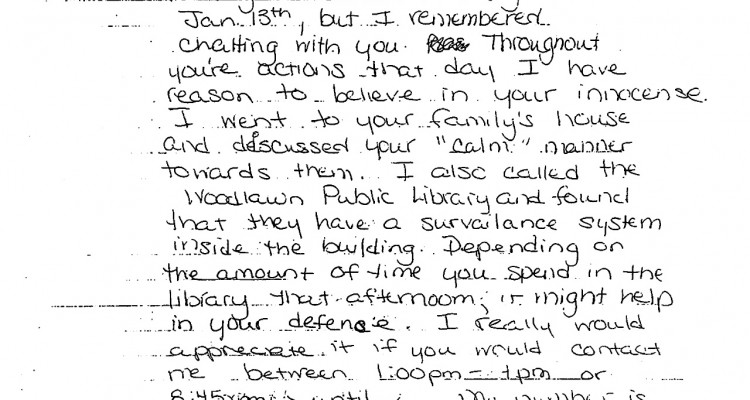 Jan 13th, but I remembered
chatting with you. Throughout
you're actions that day I have
reason to believe in your innocense.
I went to your family's house
and discussed your "calm" manner
towards them. I also called the
Woodlawn Public Library and found
that they have a survailance system
inside the building. Depending on
the amount of time you spend in the
library that afternoom, it might help
in your defence. I really would
appreciate it if you would contact
me between 1:00pm - 4pm or
8:45pm until number is